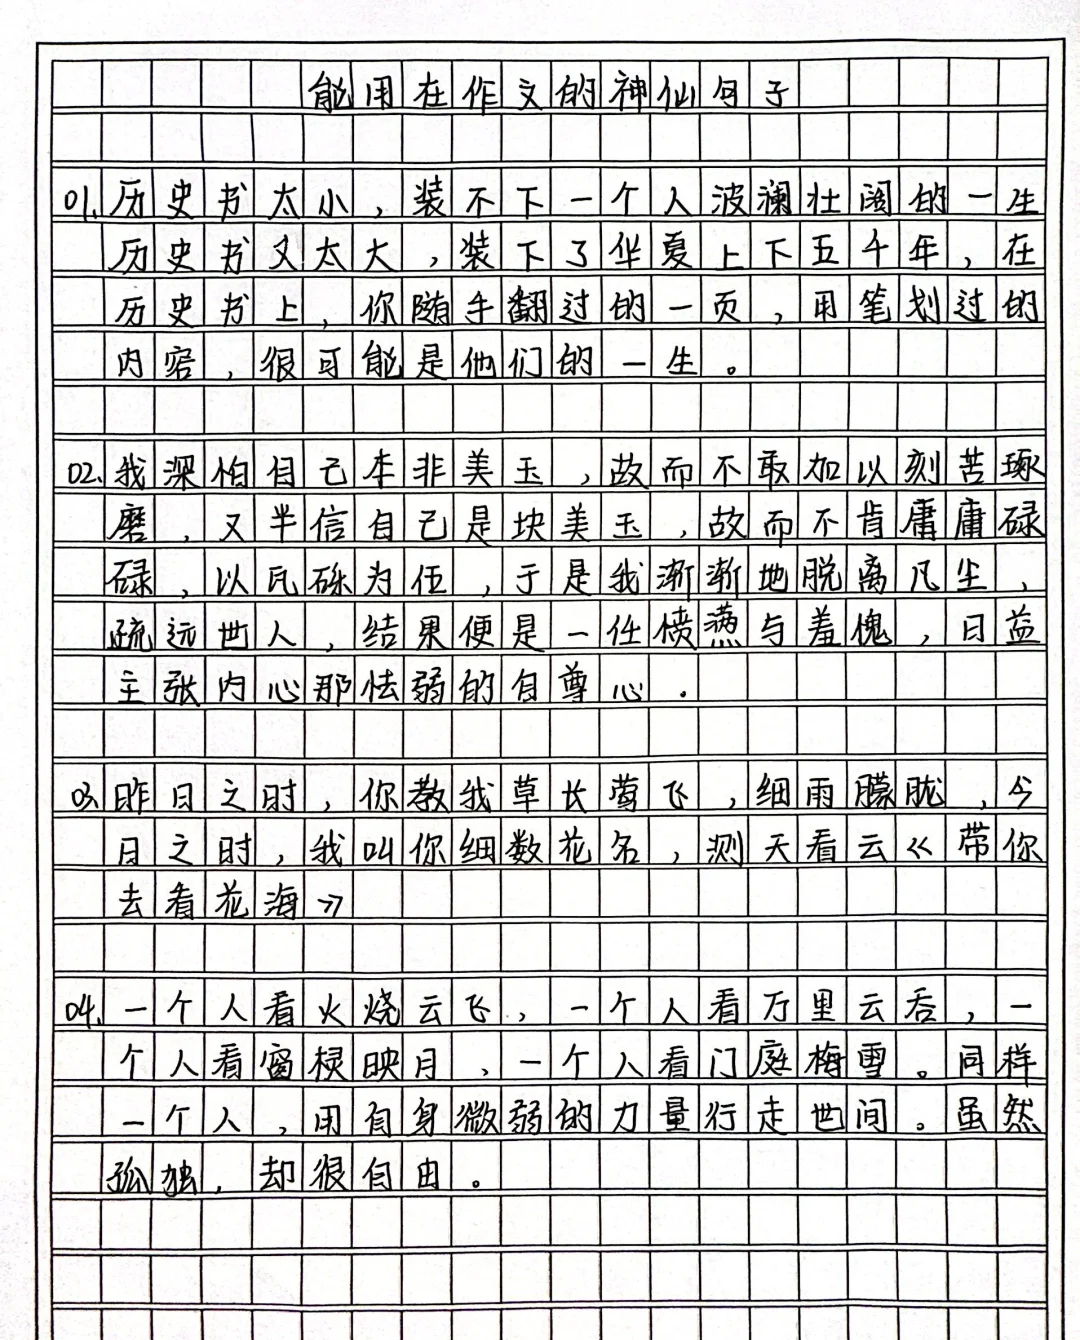 能用在作文的神仙句子
01.历史书太小，装不下一个人波澜壮阔的一生
历史书又太大，装下了华夏上下五千年，在
历史书上，你随手翻过的一页，用笔划过的
内容，很可能是他们的一生。
02.我深怕自己本非美玉，故而不敢加以刻苦琢
磨，又半信自己是块美玉，故而不肯庸庸碌
碌，以瓦砾为伍，于是我渐渐地脱离凡尘，
疏远世人，结果便是一任愤懑与羞愧，日益
主张内心那怯弱的自尊心.
03.昨日之时，你教我草长莺飞，细雨朦胧，今
日之时，我叫你细数花名，测天看云《带你
去看花海》
04.一个人看火烧云飞，一个人看万里云吞，一
个人看窗棂映月，一个人看门庭梅雪。同样
一个人，用自身微弱的力量行走世间。虽然
孤独，却很自由。